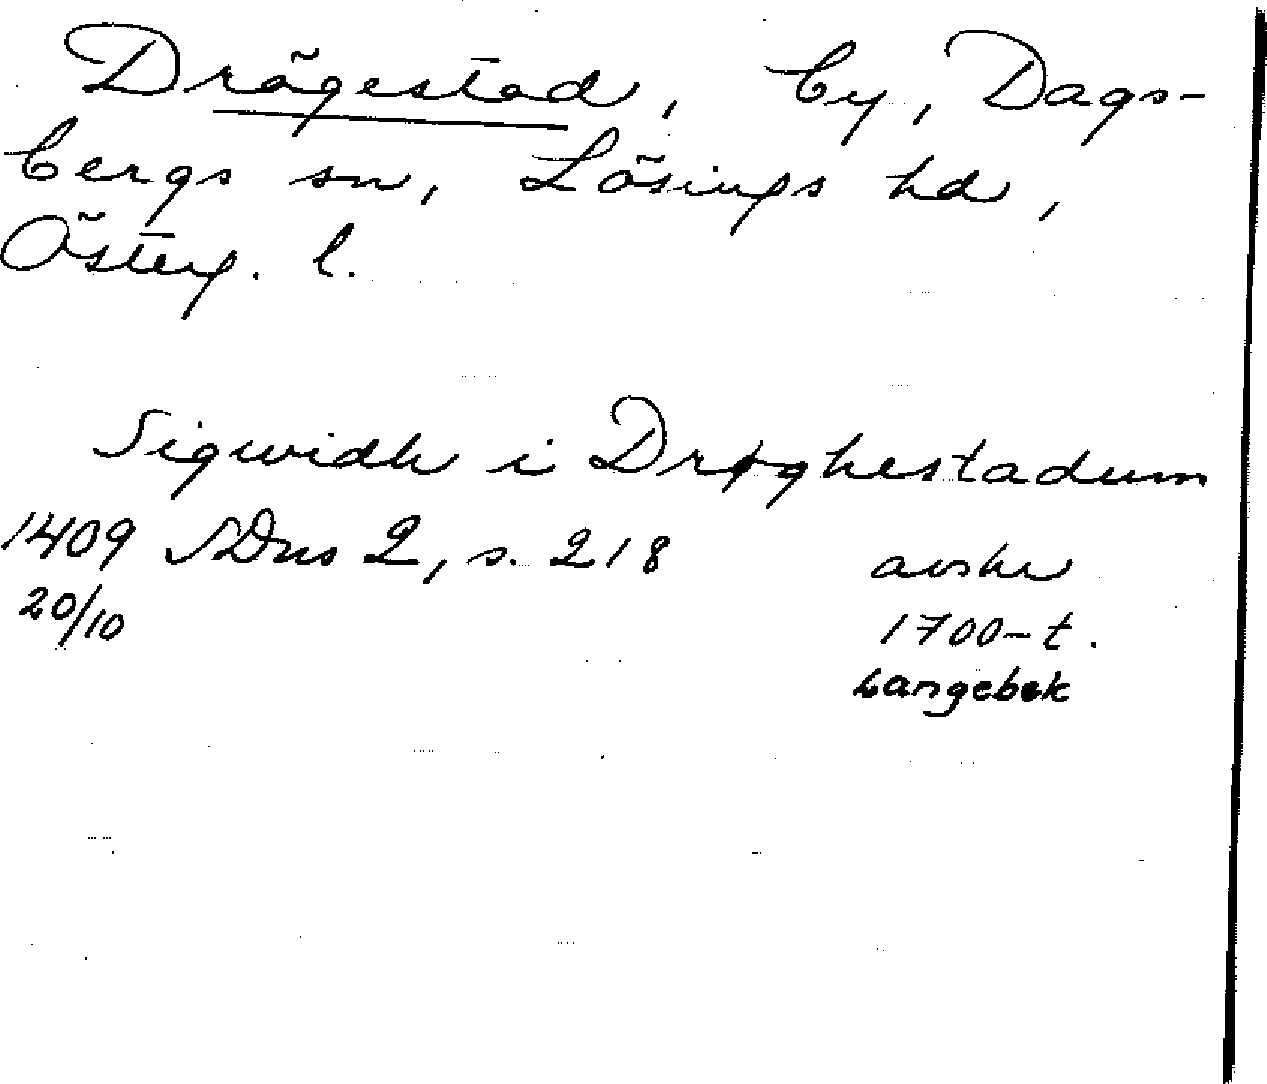 Drögestad, by, Dags-
bergs sn, Lösings hd,
Österg. l.
Sigwidh i Drøghestadum
1409 SDns 2, s. 218 avskr
20/10 1700-t.
Langebek